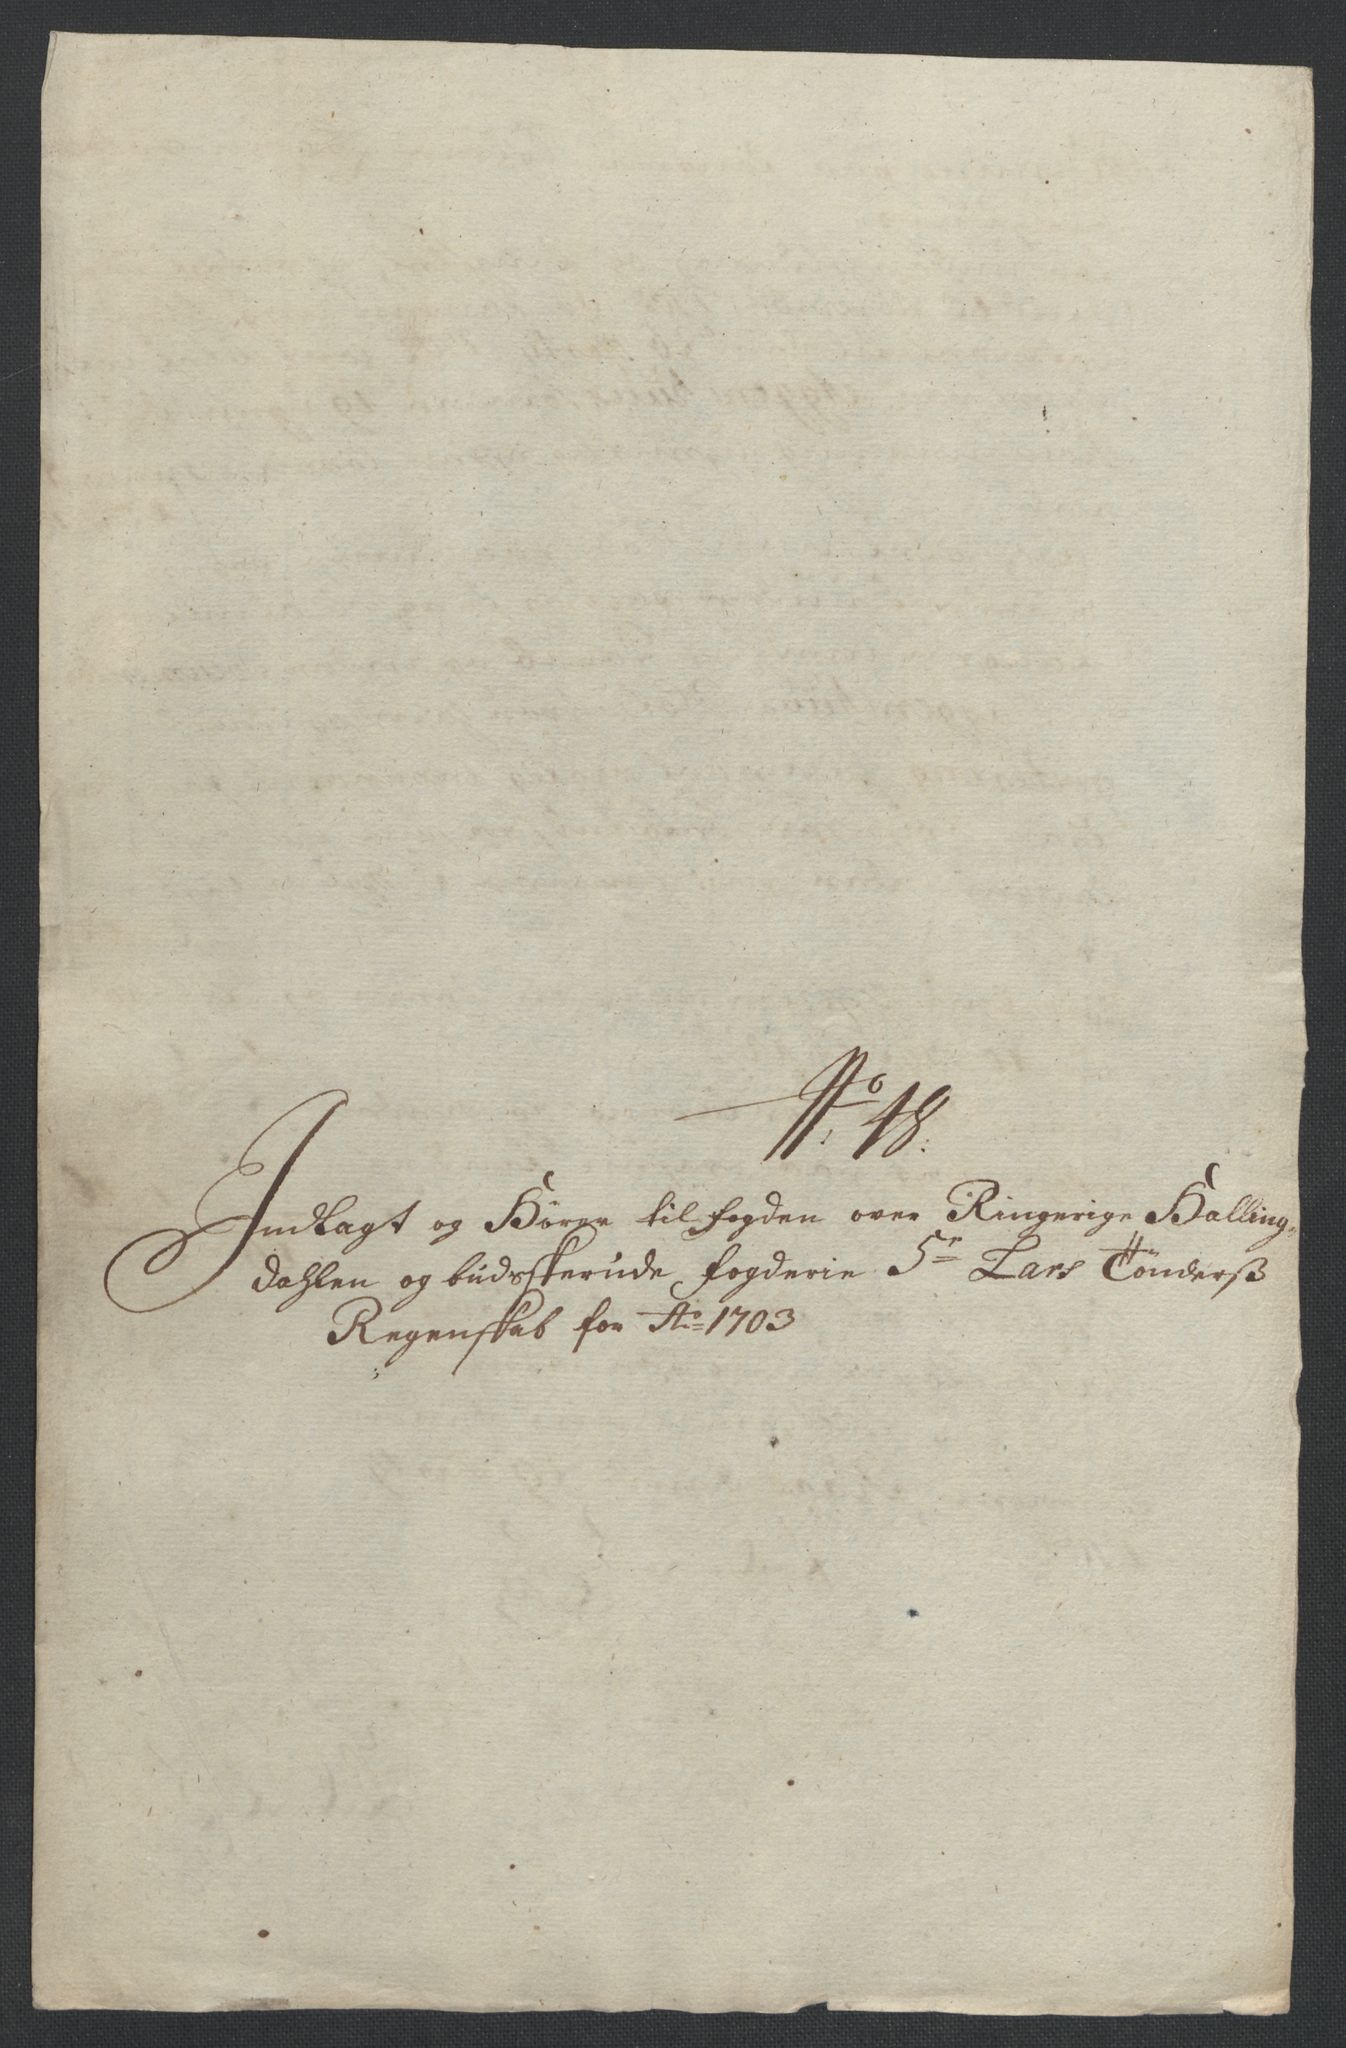 No 18.
Indlagt og Hörer til fogden over Ringerige Halling-
dahlen og budsskerude fogderie Sr Lars Tönderß
Regenskab for Ao 1703